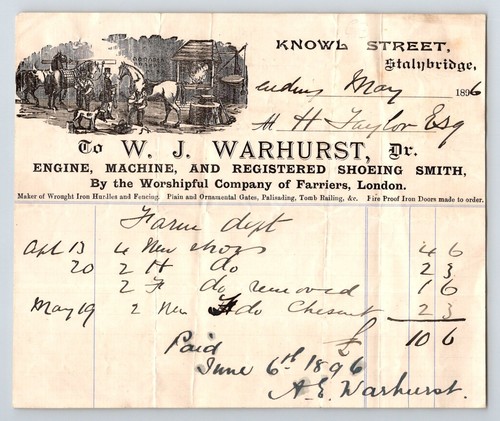 KNOWL STREET,
Stalybridge,
ending May 1896
M H Taylor Esq
To W. J. WARHURST, Dr.
ENGINE, MACHINE, AND REGISTERED SHOEING SMITH,
By the Worshipful Company of Farriers, London.
Maker of Wrought Iron Hurdles and Fencing. Plain and Ornamental Gates, Palisading, Tomb Railing, &c. Fire Proof Iron Doors made to order.
Farm dept
Apl 13 4 New shoes 4 6
20 2 H do 2 3
2 F do removed 1 6
May 19 2 New F do Chesnut 2 3
£ 10 6
Paid
June 6th 1896
A. E. Warhurst.